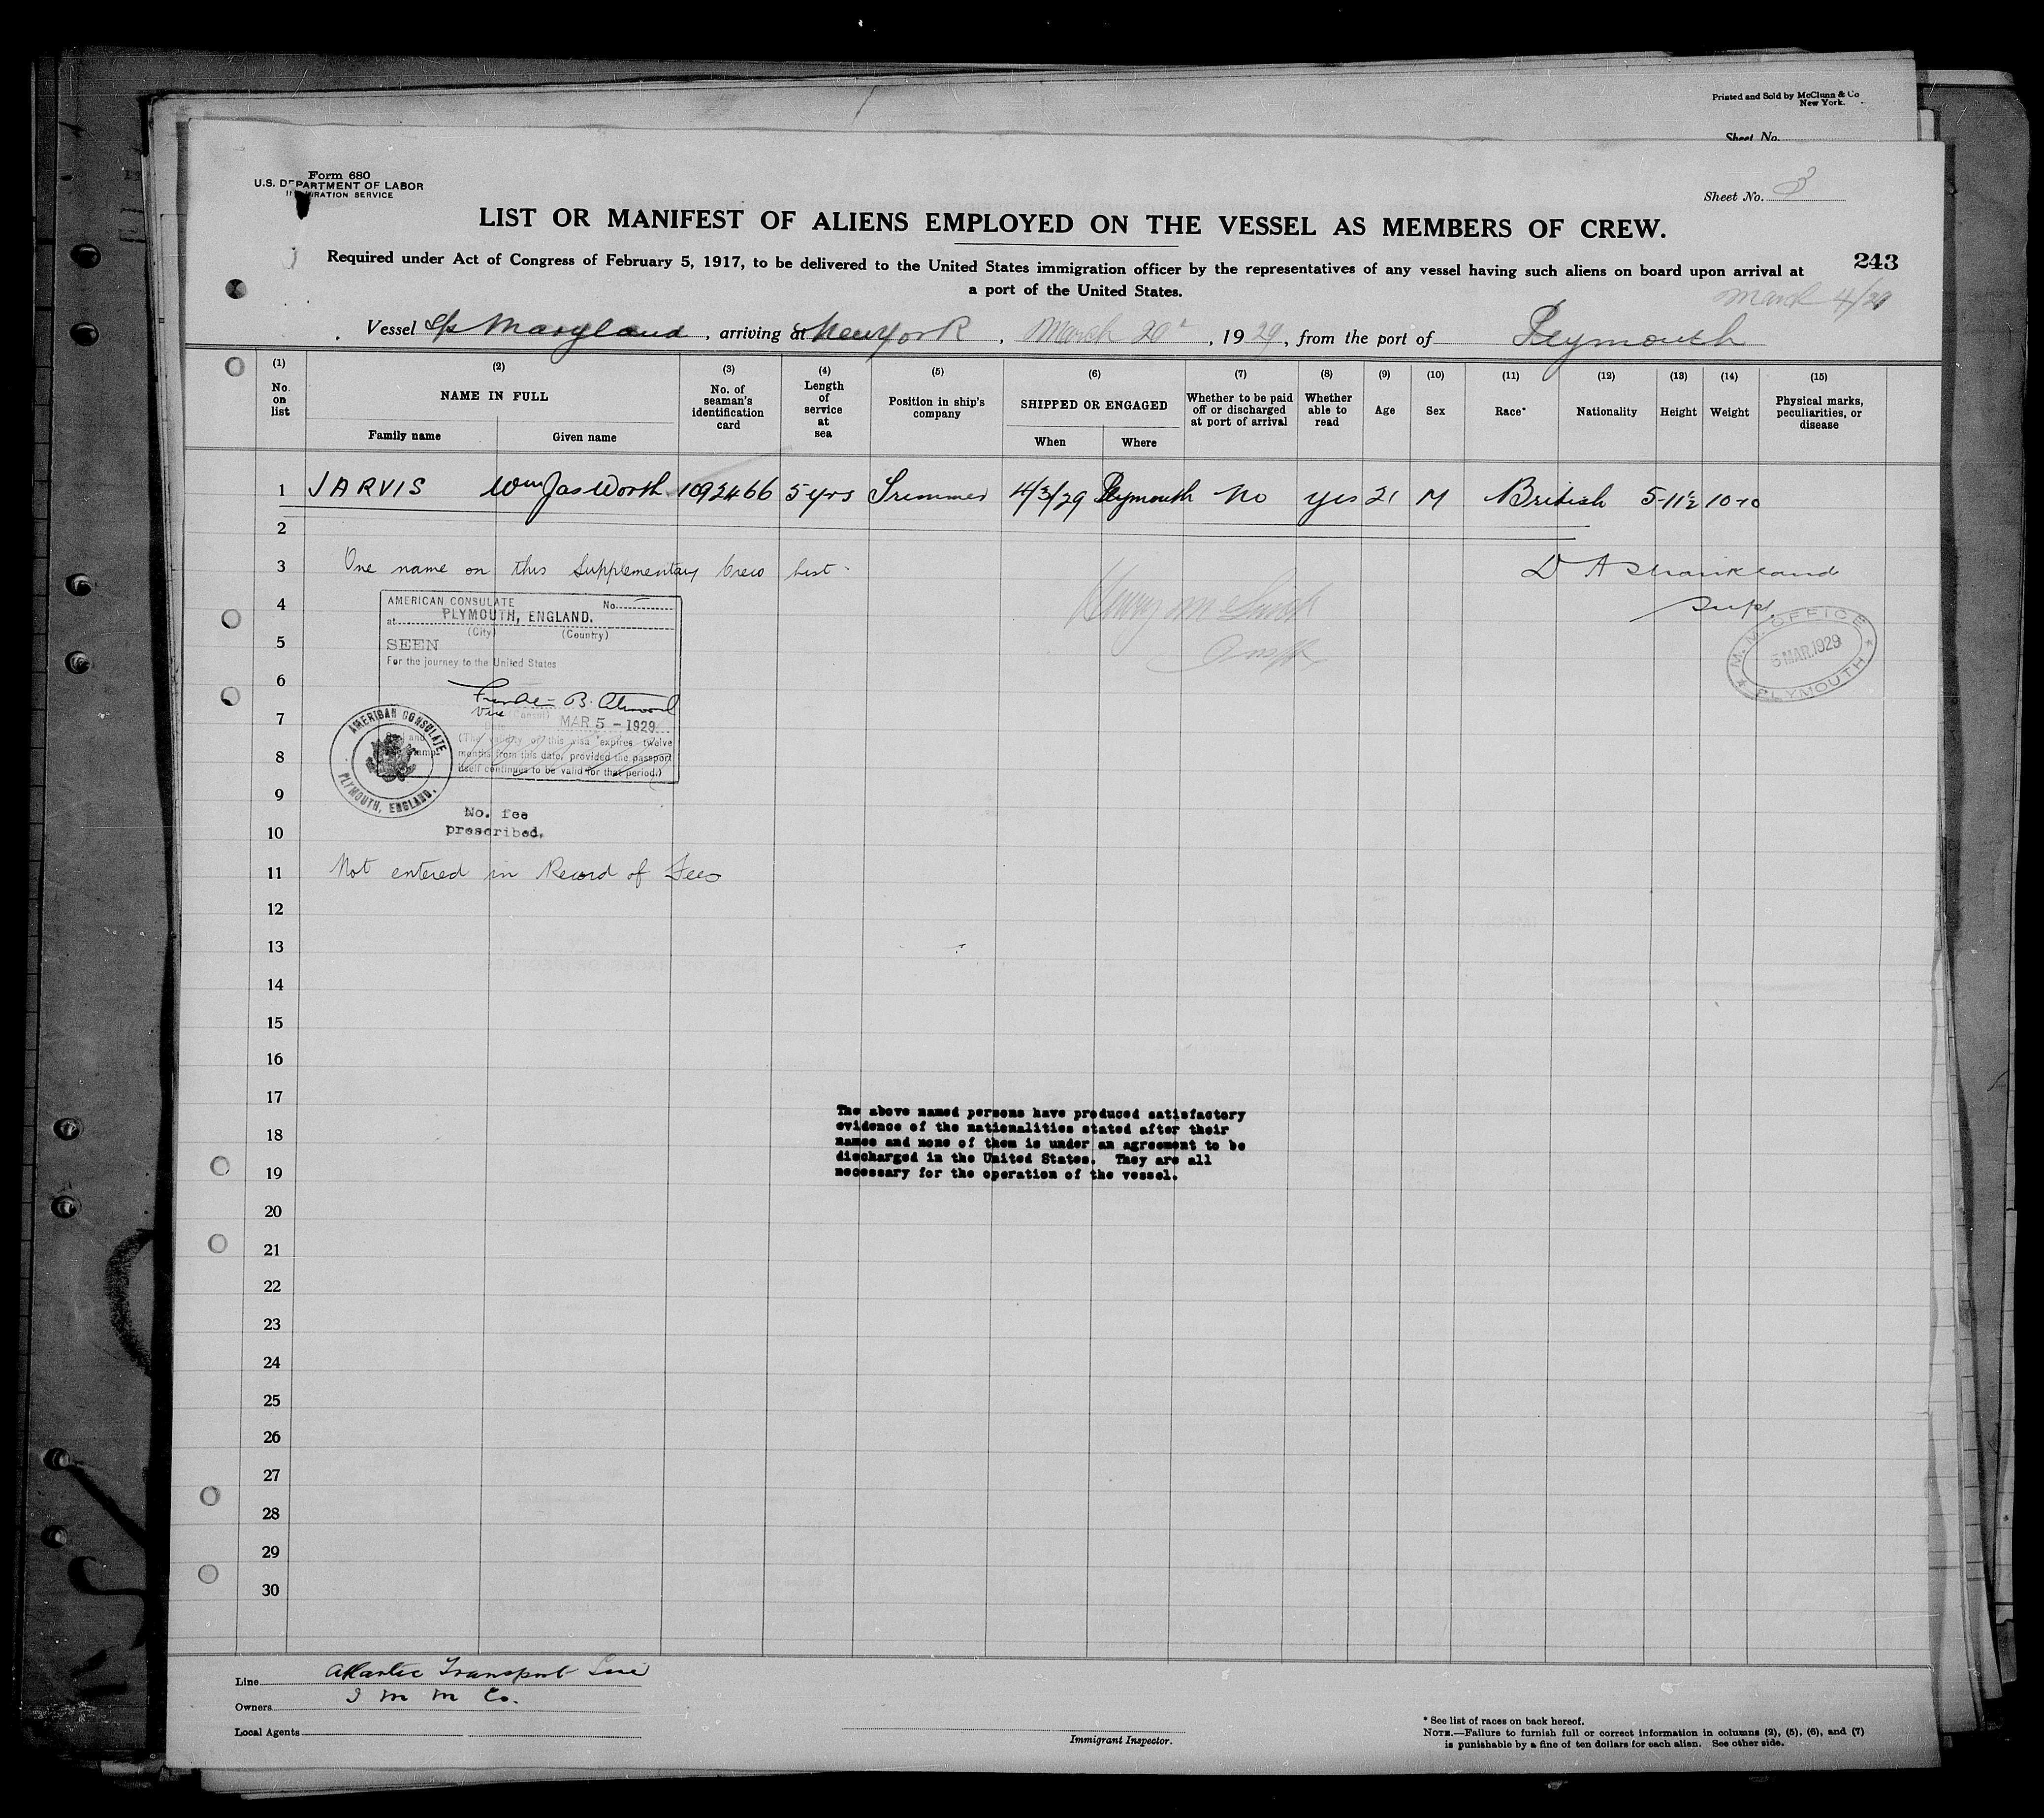 Printed and Sold by McClunn & Co
New York.
Sheet No.
Form 680
U.S. DEPARTMENT OF LABOR
IMMIGRATION SERVICE
Sheet No. 3
LIST OR MANIFEST OF ALIENS EMPLOYED ON THE VESSEL AS MEMBERS OF CREW.
243
Required under Act of Congress of February 5, 1917, to be delivered to the United States immigration officer by the representatives of any vessel having such aliens on board upon arrival at
a port of the United States.
March 4/29
Vessel Maryland, arriving at New York, March 20, 1929, from the port of Plymouth
(1) No. on list
(2) NAME IN FULL
Family name Given name
(3) No. of seaman's identification card
(4) Length of service at sea
(5) Position in ship's company
(6) SHIPPED OR ENGAGED
When Where
(7) Whether to be paid off or discharged at port of arrival
(8) Whether able to read
(9) Age
(10) Sex
(11) Race*
(12) Nationality
(13) Height
(14) Weight
(15) Physical marks, peculiarities, or disease
1 JARVIS Wm Jas Worth 1092466 5 yrs Trimmer 4/3/29 Plymouth No yes 21 M British 5-11½ 10-10
2
3 One name on this Supplementary Crew List.
4
5
6
7
8
9
10
11 Not entered in Record of Fees
12
13
14
15
16
17
18
19
20
21
22
23
24
25
26
27
28
29
30
D A
Supt.
M. M. OFFICE
5 MAR. 1929
PLYMOUTH
AMERICAN CONSULATE No.
at PLYMOUTH, ENGLAND.
(City) (Country)
SEEN
For the journey to the United States
B. Atwood
Vice (Consul)
MAR 5 - 1929
(The validity of this visa expires twelve
months from this date, provided the passport
itself continues to be valid for that period.)
AMERICAN CONSULATE
PLYMOUTH, ENGLAND.
No. fee
prescribed.
The above named persons have produced satisfactory
evidence of the nationalities stated after their
names and none of them is under an agreement to be
discharged in the United States. They are all
necessary for the operation of the vessel.
Line Atlantic Transport Line
Owners I M M Co.
Local Agents
Immigrant Inspector.
* See list of races on back hereof.
NOTE.—Failure to furnish full or correct information in columns (2), (5), (6), and (7)
is punishable by a fine of ten dollars for each alien. See other side.